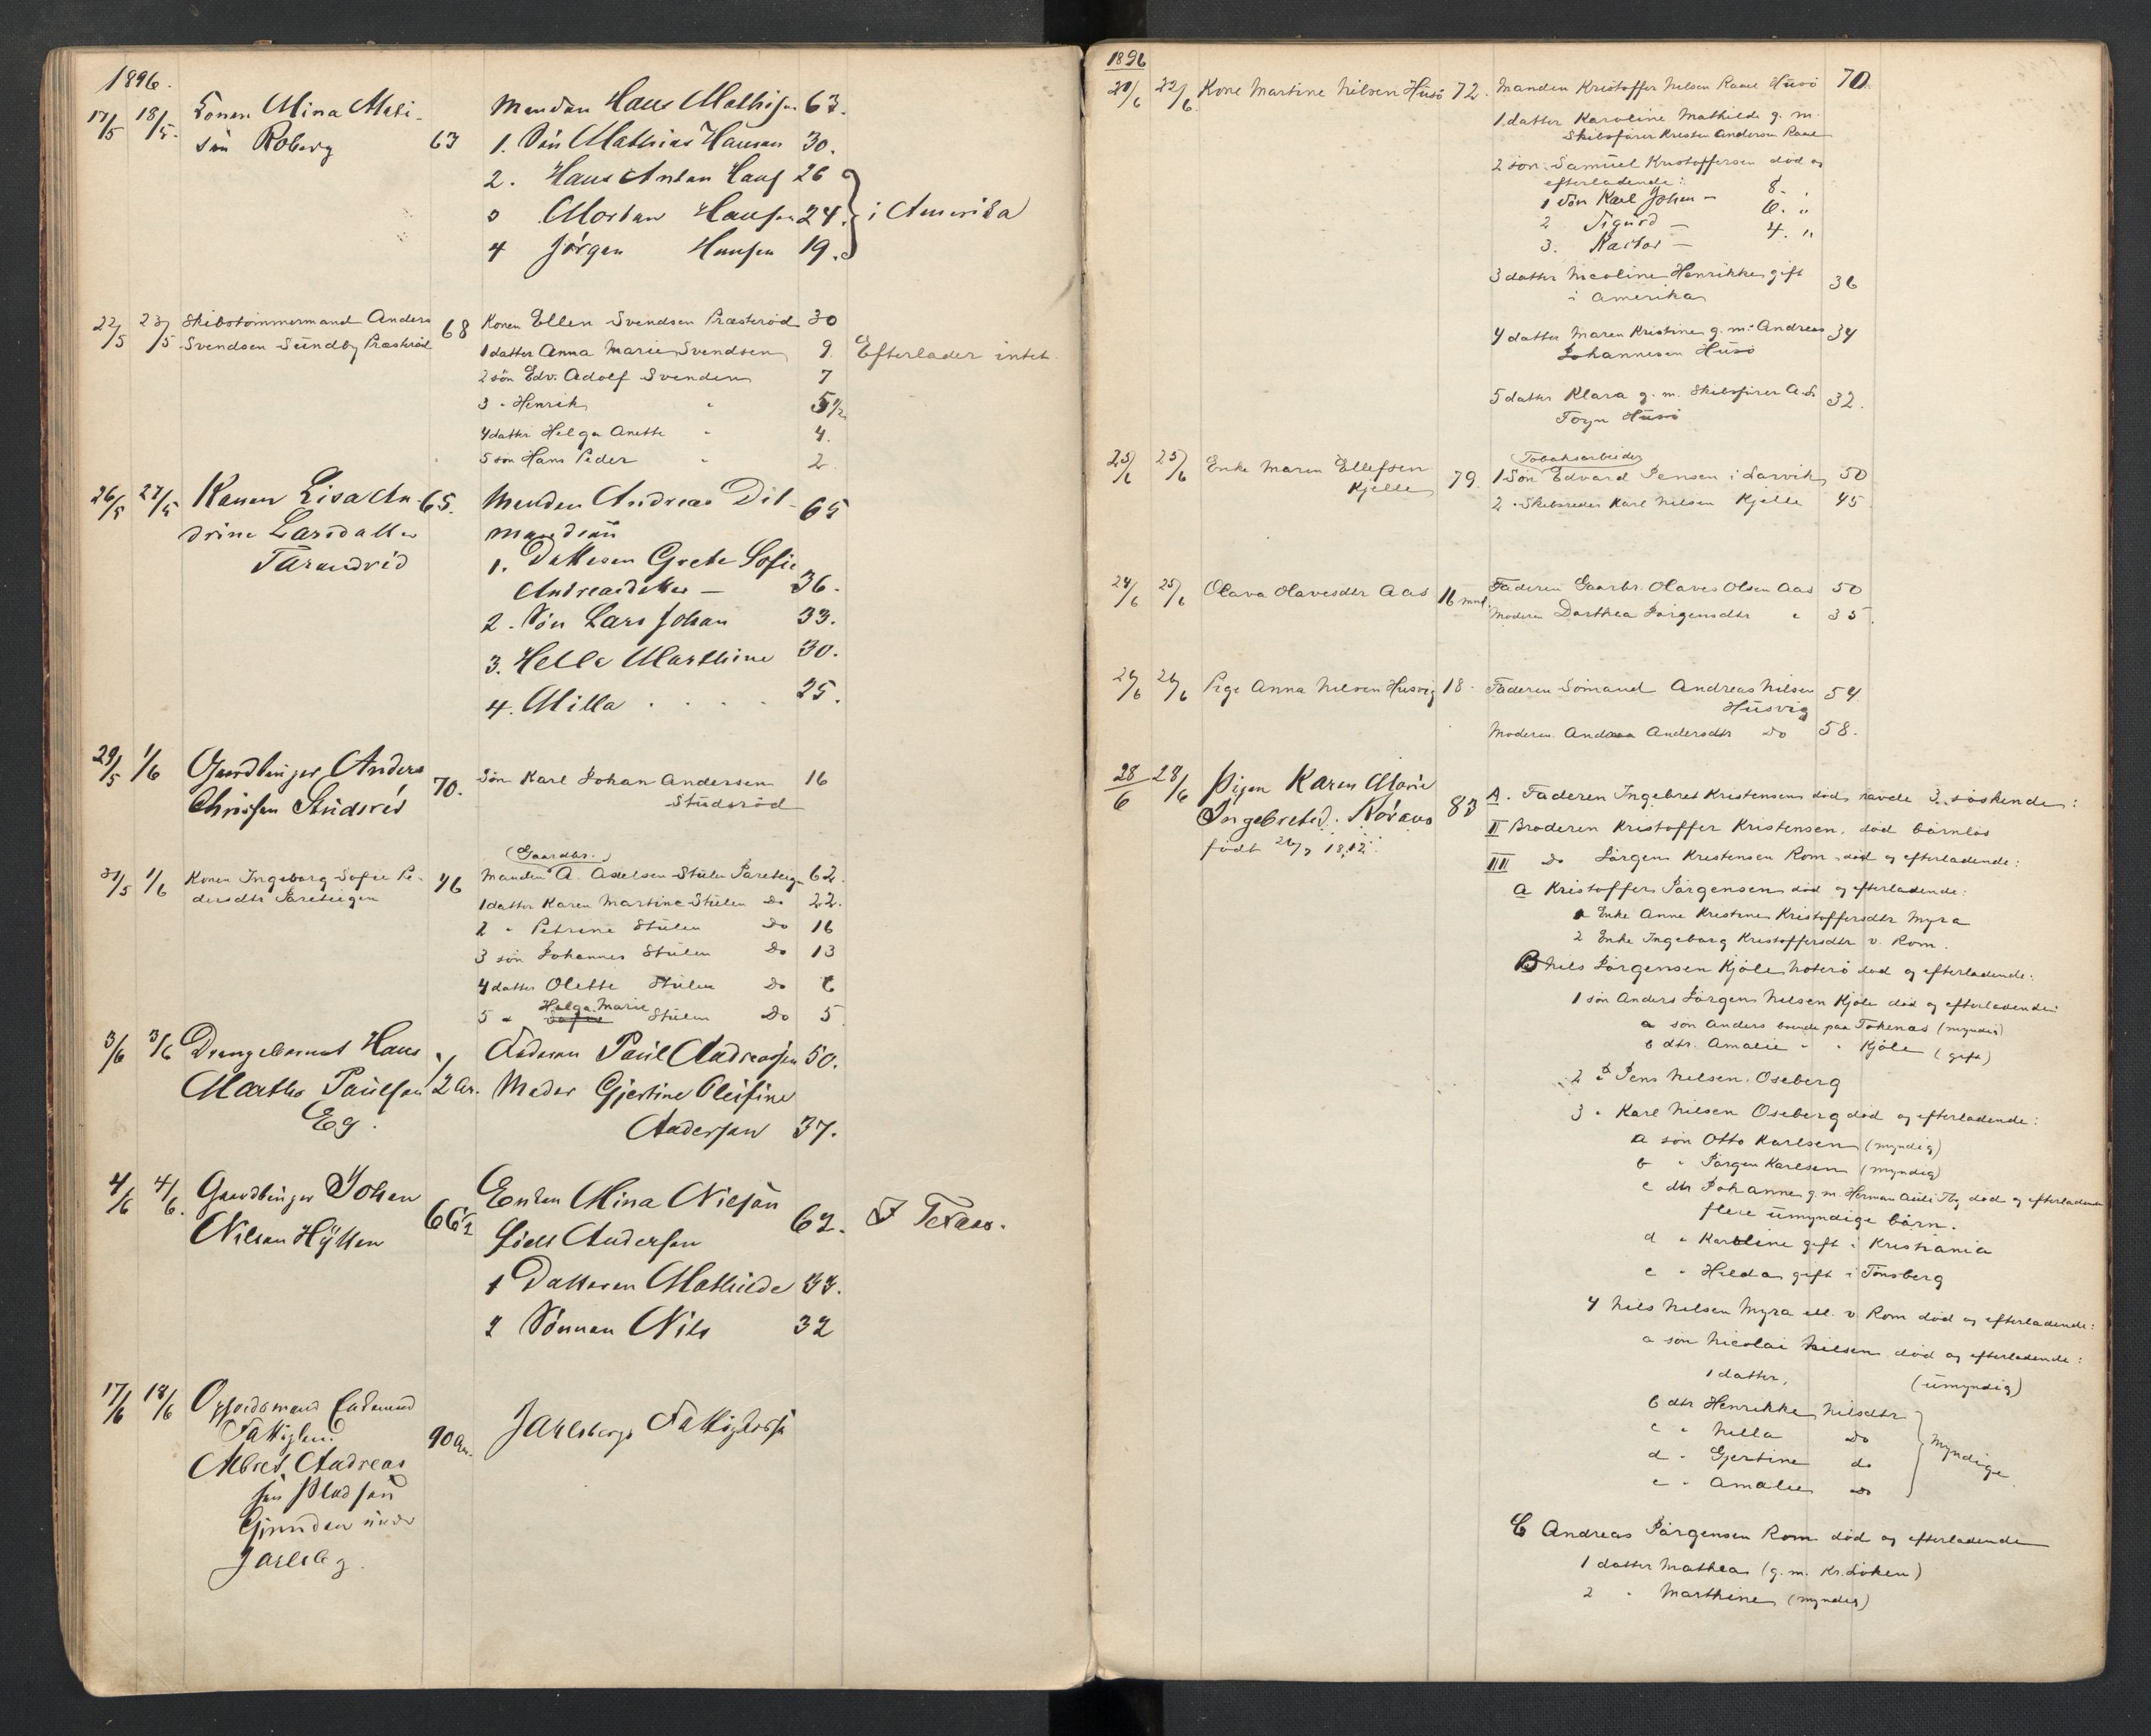 1896.
17/5 18/5 Konen Mina Mathi-
sön Roberg 63
Manden Hans Mathisen 63.
1. Sön Mathias Hansen 30.
2. Hans Anton Hans 26
3 Morten Hansen 24.
i Amerika
4 Jörgen Hansen 19.
22/5 23/5 Skibstömmermand Anders 68
Svendsen Sundby Præsteröd
Konen Ellen Svendsen Præsteröd 30
1 datter Anna Marie Svendsen 9.
Efterlader intet.
2 sön Edv. Adolf Svendsen 7
3 " Henrik " 5 1/2
4 datter Helga Anette " 4.
5 sön Hans Peder " 2
26/5 27/5 Konen Lisa An- 65.
drine Larsdatter
Tarandröd
Manden Andreas Dit- 65
mandsön
1. Datteren Grete Sofie
Andreasdatter — 36.
2. Sön Lars Johan 33.
3. Helle Marthine 30.
4. Milla . . . . 25.
29/5 1/6 Gaardbruger Anders 70.
Chrissen Studsröd
Sön Karl Johan Andersen 16
Studsröd
31/5 1/6 Konen Ingeborg Sofie Pe- 46
dersdtr Jareteigen
(Gaardbr.)
Manden A. Axelsen Stulen Jareteigen 62.
1 datter Karen Martine Stulen Do 22.
2 " Petrine Stulen Do 16
3 sön Johannes Stulen Do 13
4 datter Olette Stulen Do 6
Helga Marie
5 " Sofie Stulen Do 5
3/6 3/6 Drengebarnet Hans
Marths Paulsen 1/2 Ar.
Eg.
Faderen Paul Andreassen 50.
Moder Gjertine Oleifine
Andersen 37.
4/6 4/6. Gaardbruger Johan
Nilsen Hytten 66 1/2
Enken Mina Nielsen
födt Andersen 62.
I Texas.
1 Datteren Mathilde 33.
2 Sönnen Nils 32
17/6 18/6 Opfordsmand
Fattiglem
Albret Andreas 90 Ar.
sen
under
Jarlsbg.
Jarlsbergs Fattigkasse
1896
20/6 22/6. Kone Martine Nilsen Husö 72.
Manden Kristoffer Nilsen Raael Husö 70.
1. datter Karoline Mathilde g. m.
Skibsförer Kristen Andersen Raael
2 sön. Samuel Kristoffersen död og
efterladende:
1 Sön Karl Johan — 8. "
2 Sigurd — 6. "
3. Kastor — 4. "
3 datter Nicoline Henrikke gift 36
i Amerika
4 datter Maren Kristine g. m. Andreas 34
Johannesen Husö
5 datter Klara g. m. Skibsförer A. S. 32.
Foyn Husö
23/6 25/6 Enke Maren Ellefsen
Kjelle 79.
(Tobaksarbeider)
1 Sön Edvard Jensen i Larvik 50
2 " Skibsreder Karl Nilsen Kjelle 45
24/6 25/6 Olava Olavesdtr Aas 16 mnd.
Faderen Gaarbr. Olaves Olsen Aas 50
Moderen Dorthea Jörgensdtr " 35.
26/6 26/6 Pige Anna Nilsen Husvig 18.
Faderen Sömand Andreas Nilsen 54
Husvig
Moderen Andrea Andersdtr Do 58.
28/6 28/6 Pigen Karen Marie
Ingebretsd. Noraas 83
födt 26/7 1812.
A. Faderen Ingebret Kristensen död, havde 3 söskende:
II Broderen Kristoffer Kristensen, död barnlös
III Do Jörgen Kristensen Rom, död og efterladende:
a Kristoffer Jörgensen död og efterladende:
1 Enke Anne Kristine Kristoffersdtr Myra
2 Enke Ingeborg Kristoffersdtr v. Rom.
B Nils Jörgensen Kjöle Noterö död og efterladende:
1 sön Anders Jörgen Nilsen Kjöle död og efterladende:
a sön Anders boende paa Tokenæs (myndig)
b dtr. Amalie " " Kjöle (gift)
2 " Jens Nilsen. Oseberg
3 " Karl Nilsen Oseberg död og efterladende:
a sön Otto Karlsen (myndig)
b " Jörgen Karlsen (myndig)
c dtr Johanne g. m. Herman Auli Tbg död og efterladende
flere umyndige börn.
d " Karoline gift i Kristiania
e " Hilda gift i Tönsberg
4 Nils Nilsen Myra ell. v. Rom död og efterladende:
a sön Nicolai Nilsen död og efterladende:
1 datter, (umyndig)
b dtr Henrikke Nilsdtr
c " Nilla Do
d " Gjertine do
e " Amalie Do
myndige
C Andreas Jörgensen Rom död og efterladende
1 datter Mathea (g. m. Kr. Löken)
2 " Marthine (myndig)